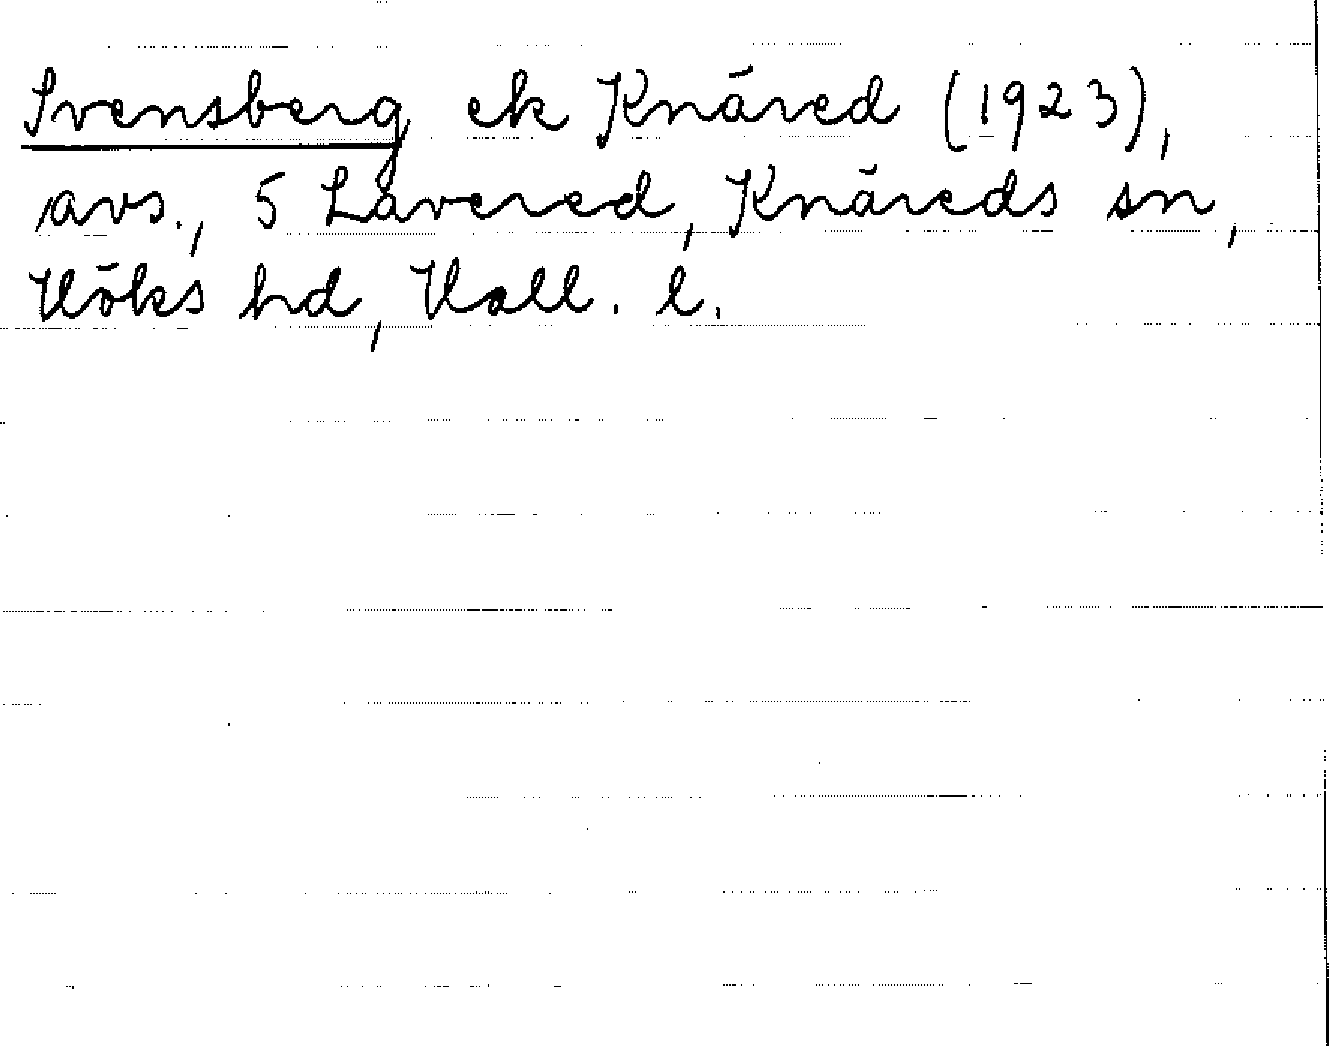 Svensberg ek Knäred (1923),
avs., 5 Lavered, Knäreds sn,
Höks hd, Hall. l.